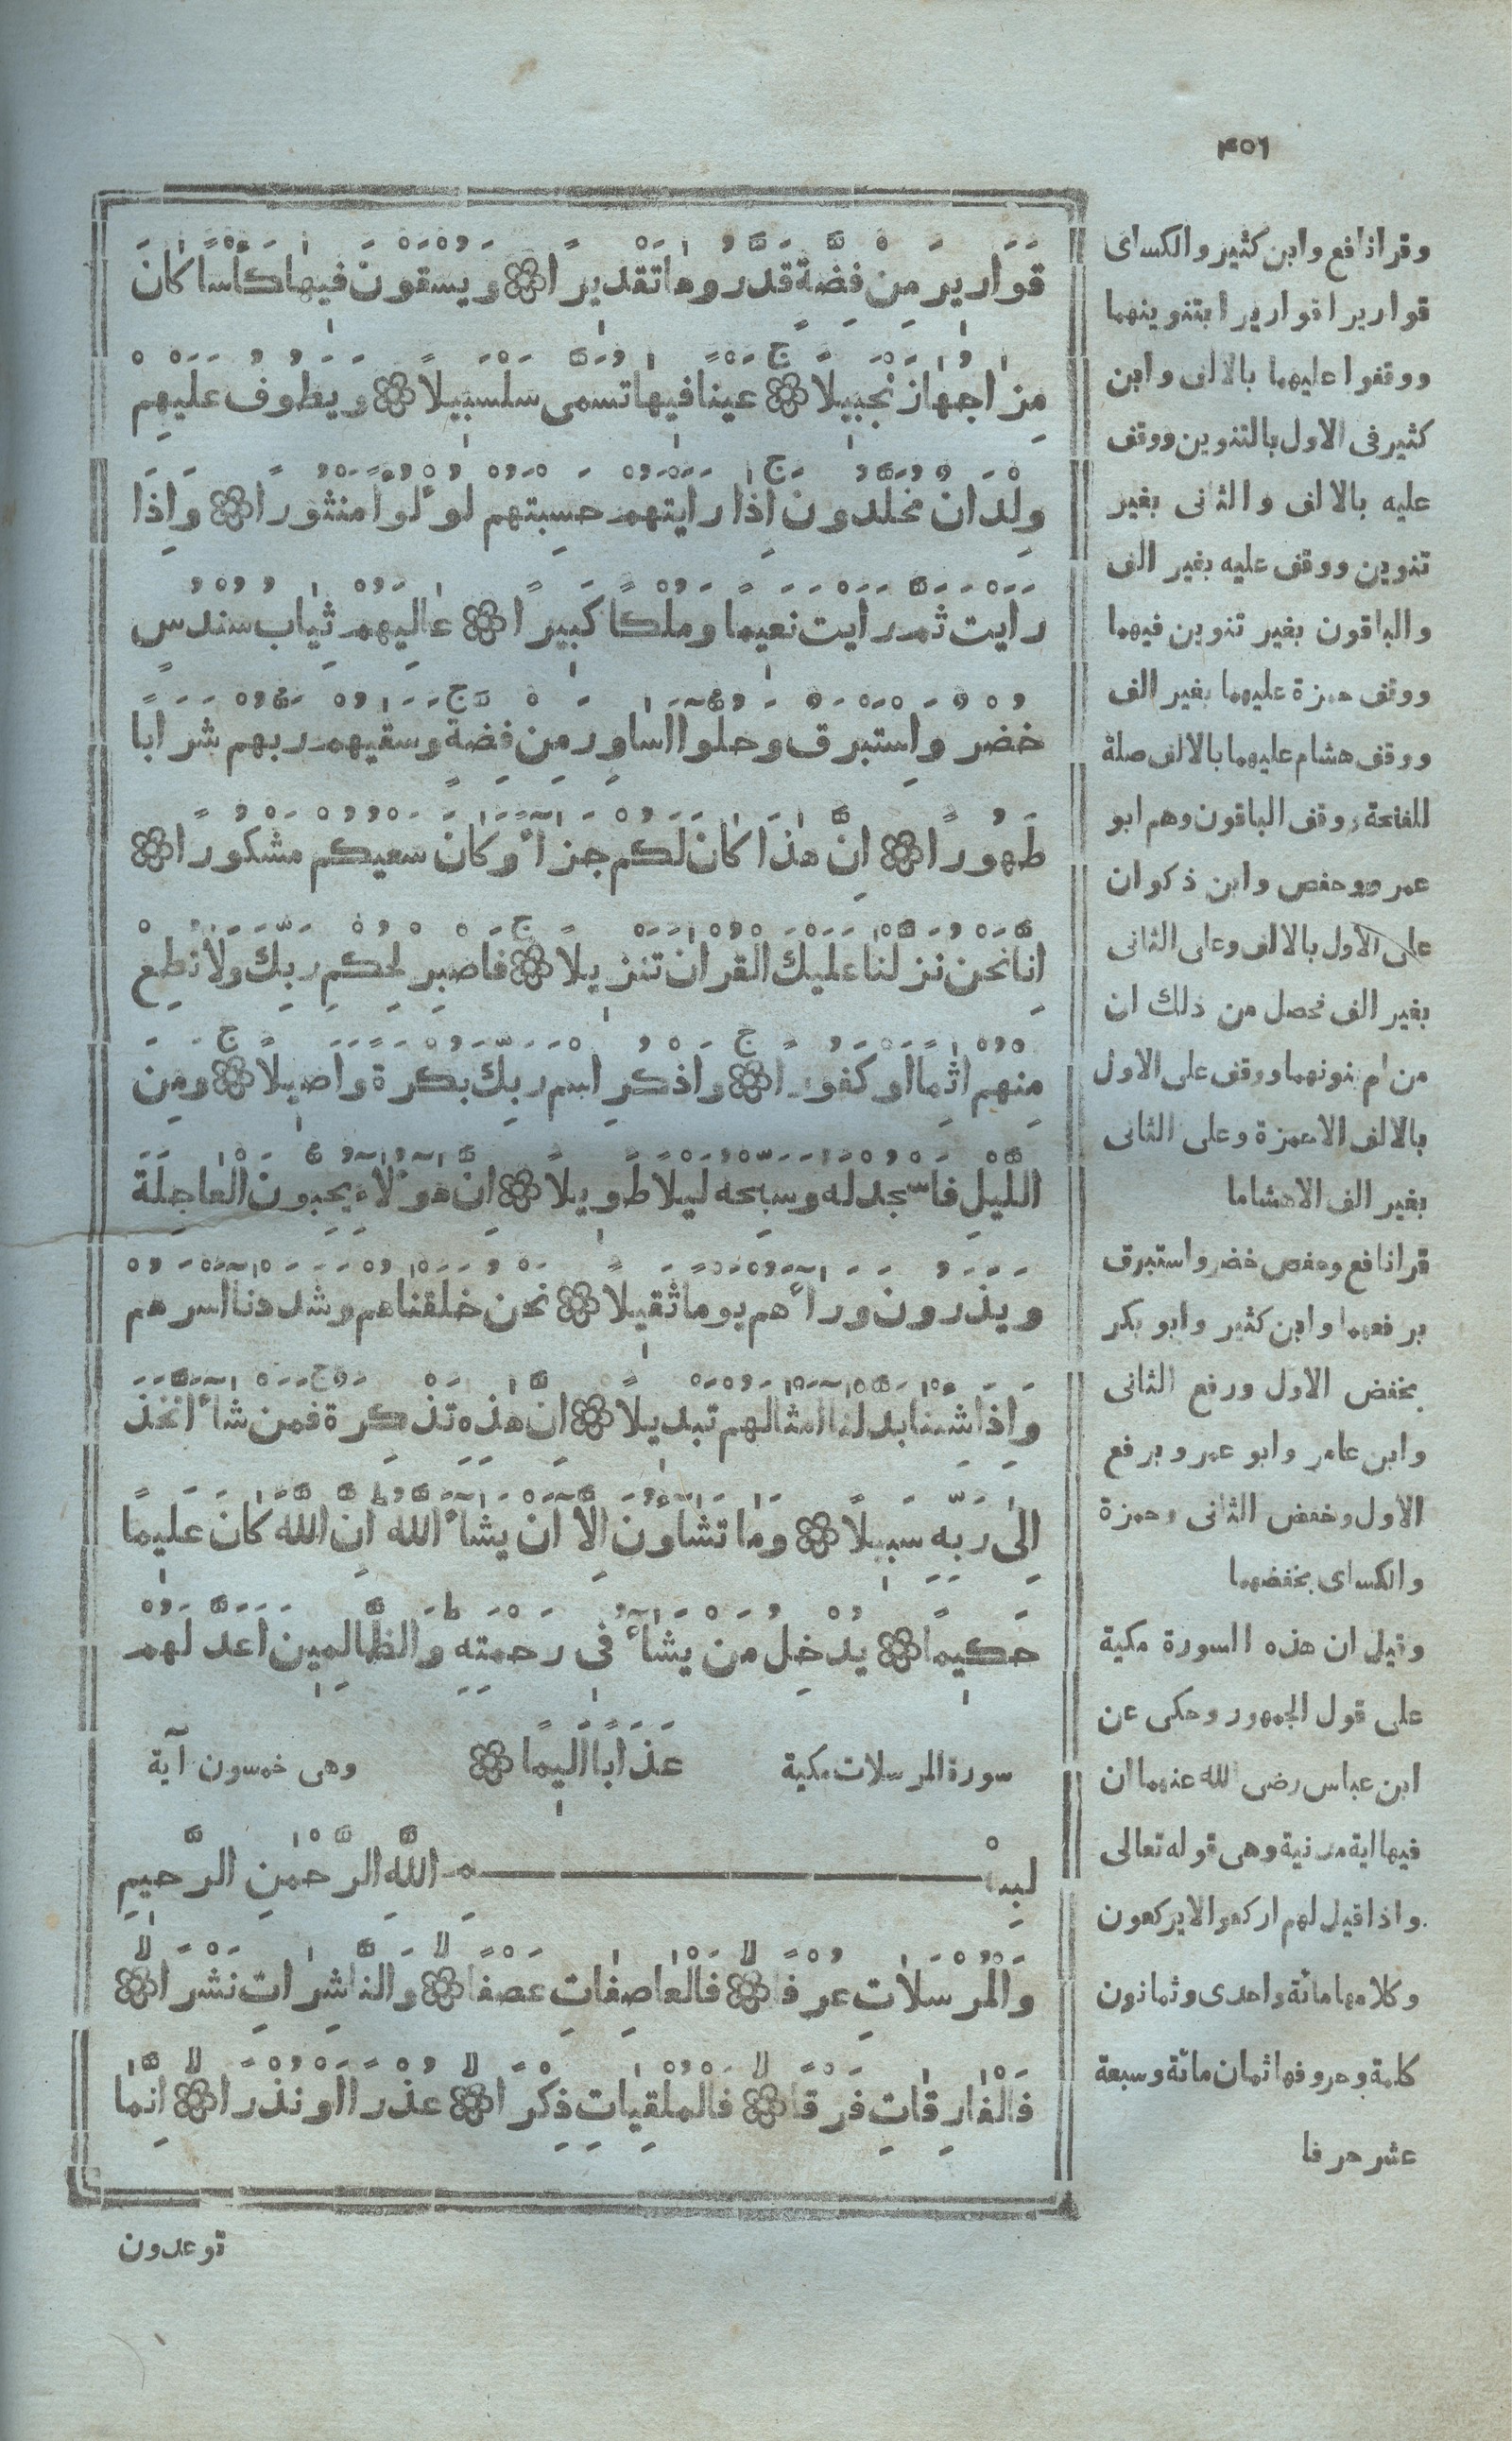 ٤٥٦
قَوَارِيرَ مِنْ فِضَّةٍ قَدَّرُوهَا تَقْدِيرًا ۞ وَيُسْقَوْنَ فِيهَا كَأْسًا كَانَ
مِزَاجُهَا زَنْجَبِيلًا ۞ عَيْنًا فِيهَا تُسَمَّى سَلْسَبِيلًا ۞ وَيَطُوفُ عَلَيْهِمْ
وِلْدَانٌ مُخَلَّدُونَ اِذَا رَاَيْتَهُمْ حَسِبْتَهُمْ لُؤْلُؤًا مَنْثُورًا ۞ وَاِذَا
رَاَيْتَ ثَمَّ رَاَيْتَ نَعِيمًا وَمُلْكًا كَبِيرًا ۞ عَالِيَهُمْ ثِيَابُ سُنْدُسٍ
خُضْرٌ وَاِسْتَبْرَقٌ وَحُلُّوٓا اَسَاوِرَ مِنْ فِضَّةٍ وَسَقٰيهُمْ رَبُّهُمْ شَرَابًا
طَهُورًا ۞ اِنَّ هٰذَا كَانَ لَكُمْ جَزَآءً وَكَانَ سَعْيُكُمْ مَشْكُورًا ۞
اِنَّا نَحْنُ نَزَّلْنَا عَلَيْكَ الْقُرْاٰنَ تَنْزِيلًا ۞ فَاصْبِرْ لِحُكْمِ رَبِّكَ وَلَا تُطِعْ
مِنْهُمْ اٰثِمًا اَوْ كَفُورًا ۞ وَاذْكُرِ اسْمَ رَبِّكَ بُكْرَةً وَاَصِيلًا ۞ وَمِنَ
الَّيْلِ فَاسْجُدْ لَهُ وَسَبِّحْهُ لَيْلًا طَوِيلًا ۞ اِنَّ هٰٓؤُلَآءِ يُحِبُّونَ الْعَاجِلَةَ
وَيَذَرُونَ وَرَآءَهُمْ يَوْمًا ثَقِيلًا ۞ نَحْنُ خَلَقْنَاهُمْ وَشَدَدْنَا اَسْرَهُمْ
وَاِذَا شِئْنَا بَدَّلْنَا اَمْثَالَهُمْ تَبْدِيلًا ۞ اِنَّ هٰذِهِ تَذْكِرَةٌ فَمَنْ شَآءَ اتَّخَذَ
اِلٰى رَبِّهِ سَبِيلًا ۞ وَمَا تَشَآؤُنَ اِلَّآ اَنْ يَشَآءَ اللّٰهُ اِنَّ اللّٰهَ كَانَ عَلِيمًا
حَكِيمًا ۞ يُدْخِلُ مَنْ يَشَآءُ فِى رَحْمَتِهِ وَالظَّالِمِينَ اَعَدَّ لَهُمْ
سورة المرسلات مكية عَذَابًا اَلِيمًا ۞ وهى خمسون آية
بِسْمِ اللّٰهِ الرَّحْمٰنِ الرَّحِيمِ
وَالْمُرْسَلَاتِ عُرْفًا ۞ فَالْعَاصِفَاتِ عَصْفًا ۞ وَالنَّاشِرَاتِ نَشْرًا ۞
فَالْفَارِقَاتِ فَرْقًا ۞ فَالْمُلْقِيَاتِ ذِكْرًا ۞ عُذْرًا اَوْ نُذْرًا ۞ اِنَّمَا
توعدون
وقرا نافع وابن كثير والكساى
قواريرا قواريرا بتنوينهما
ووقفوا عليهما بالالف وابن
كثير فى الاول بالتنوين ووقف
عليه بالالف والثانى بغير
تنوين ووقف عليه بغير الف
والباقون بغير تنوين فيهما
ووقف حمزة عليهما بغير الف
ووقف هشام عليهما بالالف صلة
للفتحة ووقف الباقون وهم ابو
عمرو وحفص وابن ذكوان
على الاول بالالف وعلى الثانى
بغير الف فحصل من ذلك ان
من لم ينونهما ووقف على الاول
بالالف الا حمزة وعلى الثانى
بغير الف الا هشاما
قرا نافع وحفص خضر واستبرق
برفعهما وابن كثير وابو بكر
بخفض الاول ورفع الثانى
وابن عامر وابو عمرو برفع
الاول وخفض الثانى وحمزة
والكساى بخفضهما
وقيل ان هذه السورة مكية
على قول الجمهور وحكى عن
ابن عباس رضى الله عنهما ان
فيها اية مدنية وهى قوله تعالى
واذا قيل لهم اركعوا لا يركعون
وكلامها مائة واحدى وثمانون
كلمة وحروفها ثمان مائة وسبعة
عشر حرفا